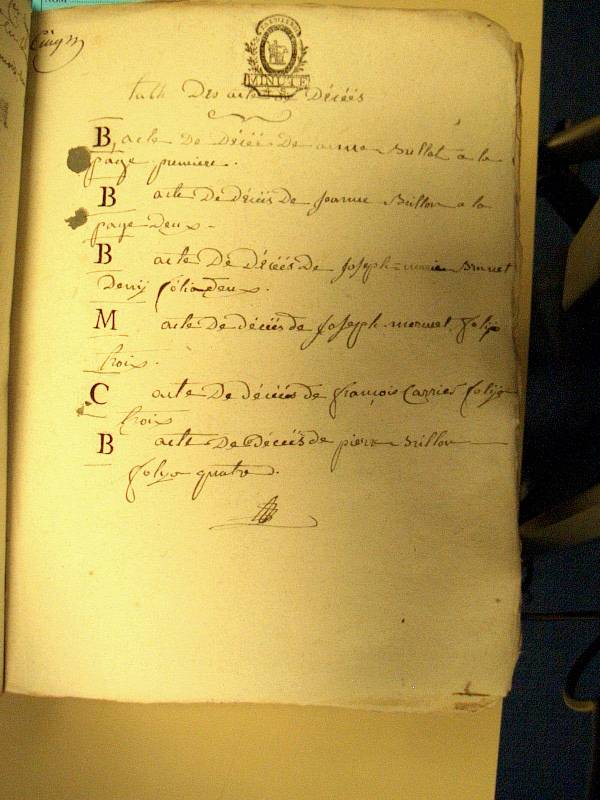 MINUTE
Des acte de Décéés
B, acte De Décéés De anne Brillot a la
page premiere.
B acte De Décéés De Jeanne Brillon a la
page Deux.
B acte De Décéés De Joseph=marie Brunet
Denij folio deux.
M acte De décéés de Joseph mornet folyo
troix.
C acte De décéés de françois Carrier folyo
troix
B acte De Décéés de pierre Brillon
folyo quatre.